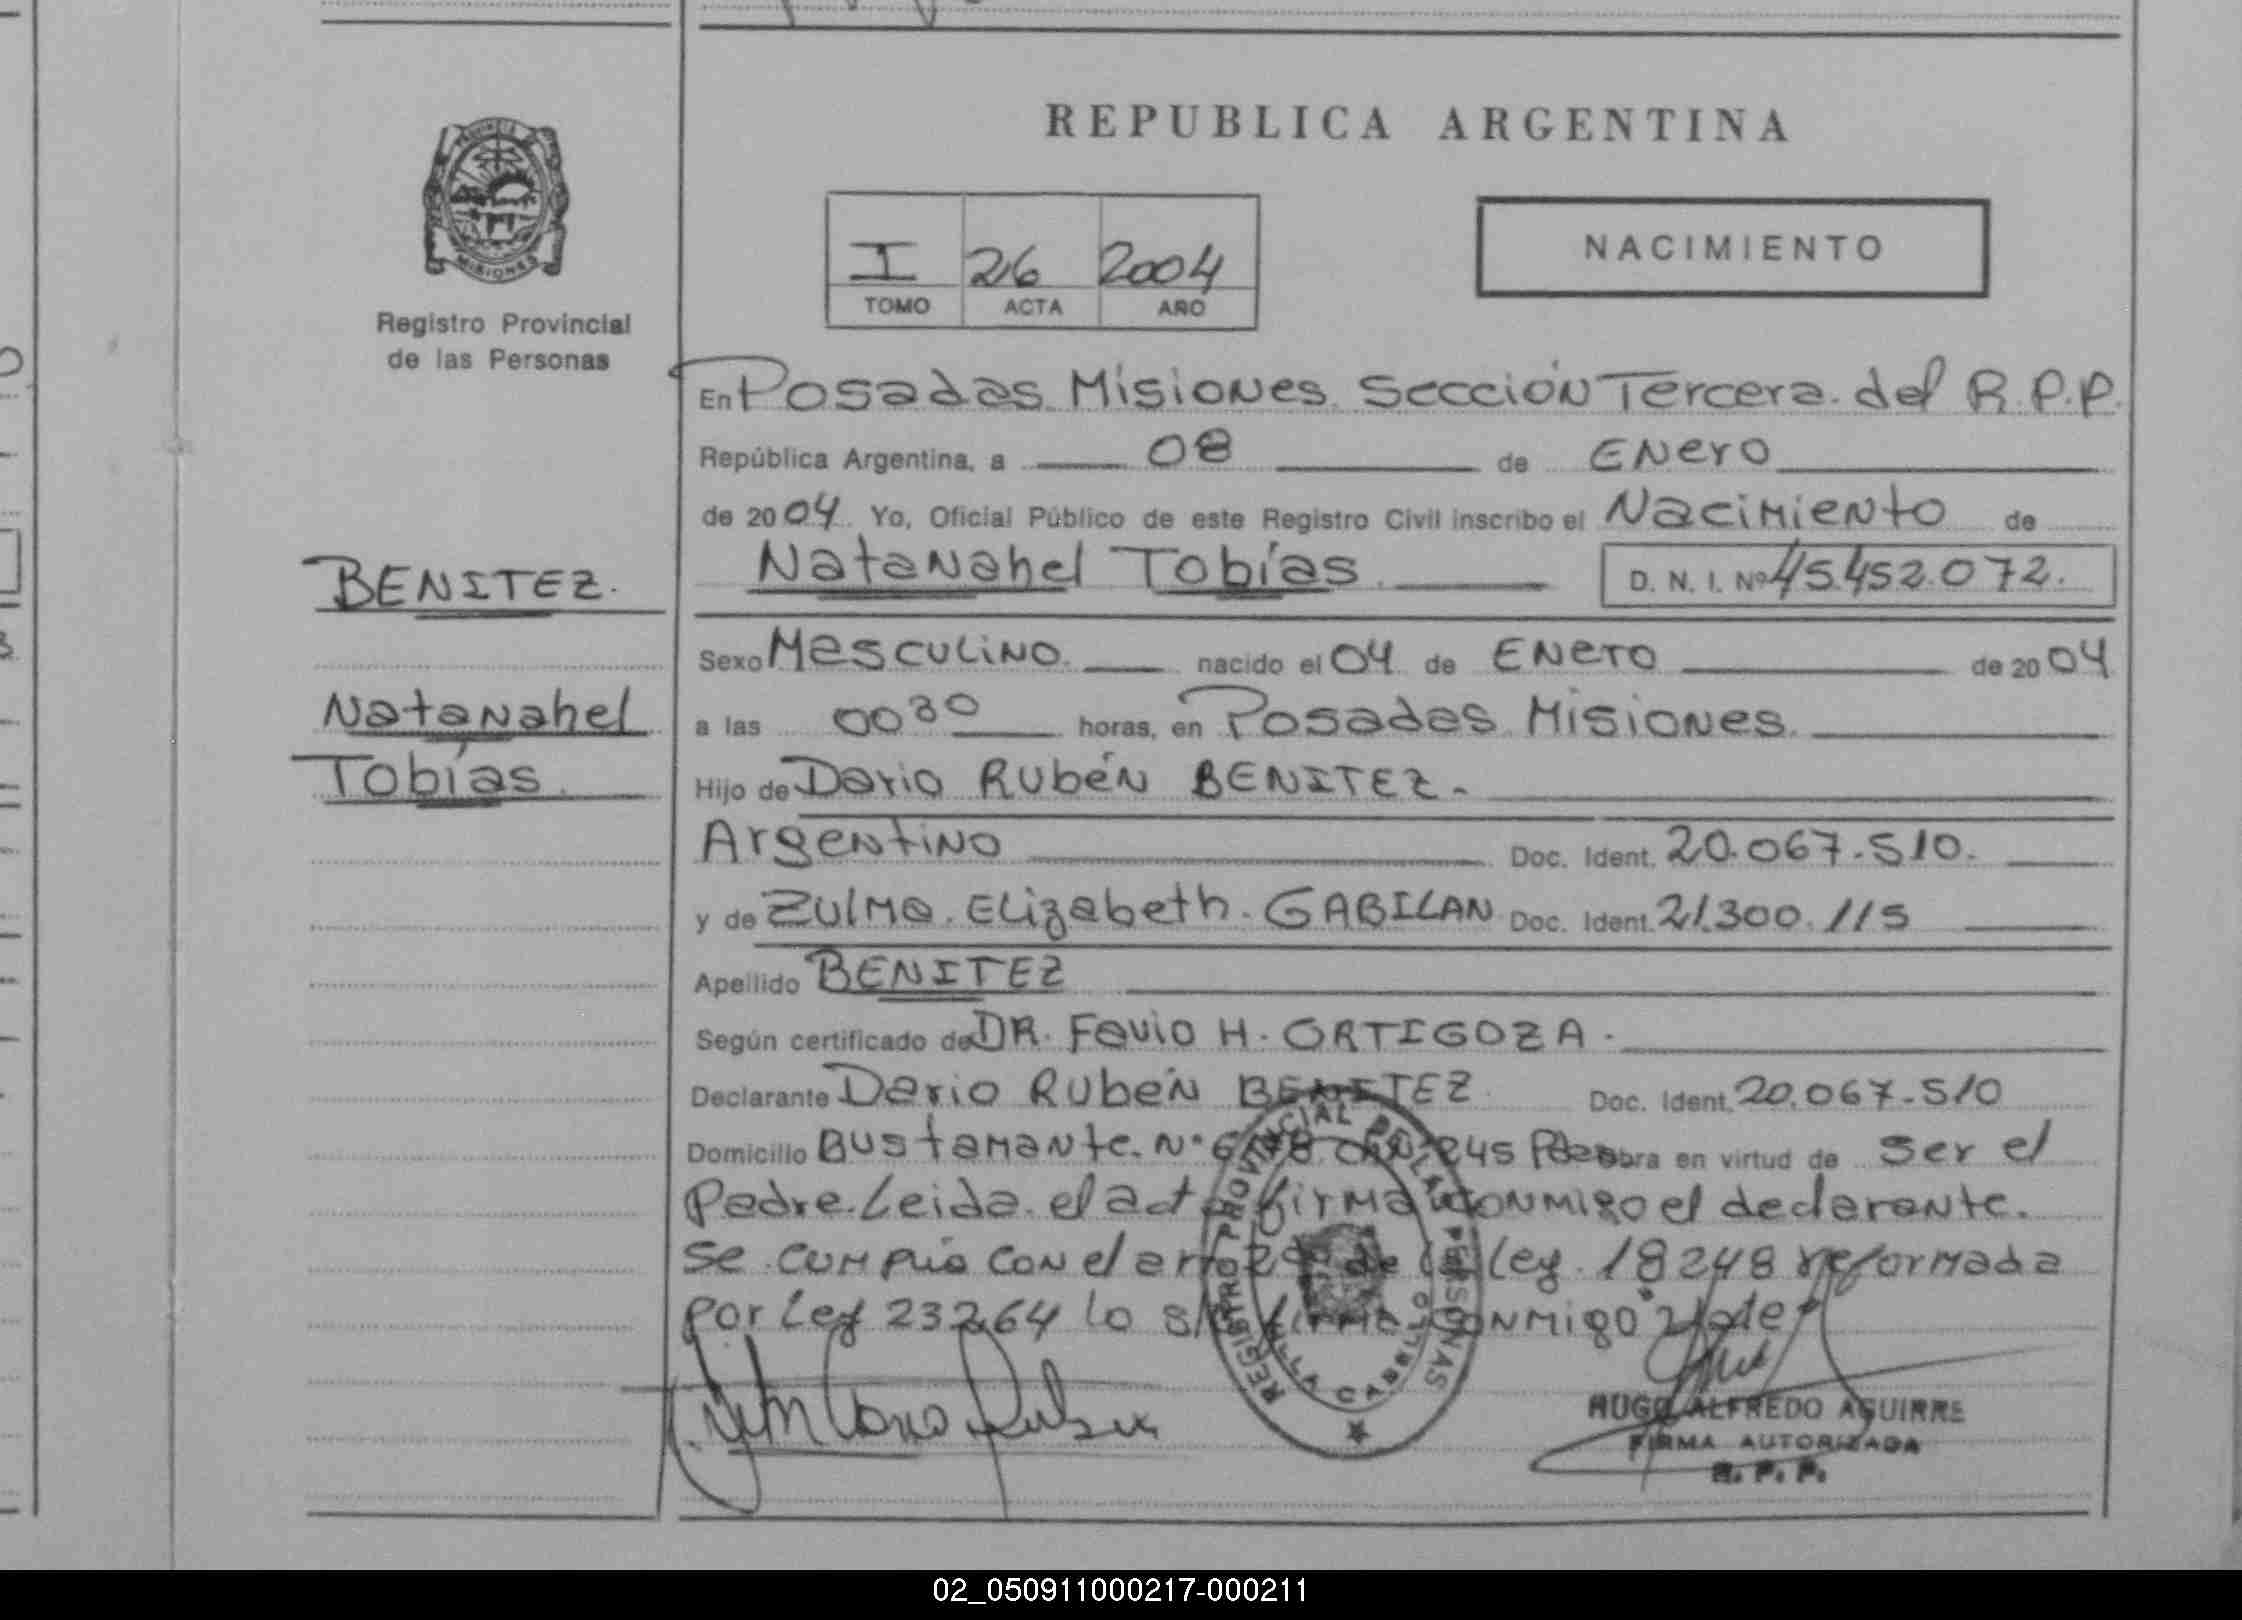 REPUBLICA ARGENTINA
PROVINCIA DE
MISIONES
Registro Provincial
de las Personas
I 26 2004
TOMO ACTA AÑO
NACIMIENTO
En Posadas Misiones Sección Tercera del R.P.P.
República Argentina, a 08 de Enero
de 2004 Yo, Oficial Público de este Registro Civil inscribo el Nacimiento de
Natanahel Tobías D. N. I. Nº 45.452.072.
BENITEZ.
Natanahel
Tobías
Sexo Masculino nacido el 04 de Enero de 2004
a las 0030 horas, en Posadas Misiones.
Hijo de Dario Rubén BENITEZ.
Argentino Doc. Ident. 20.067.510.
y de Zulma Elizabeth GABILAN Doc. Ident. 21.300.115
Apellido BENITEZ
Según certificado de DR. Favio H. ORTIGOZA.
Declarante Dario Rubén BENITEZ Doc. Ident. 20.067.510
Domicilio Bustamante Nº 245 Obra en virtud de ser el
Padre. Leida el acta firma conmigo el declarante.
Se cumplió con el art de la Ley 18248 reformada
por Ley 23264 lo firma conmigo
REGISTRO PROVINCIAL DE LAS PERSONAS
VILLA CABELLO
HUGO ALFREDO AGUIRRE
FIRMA AUTORIZADA
R. P. P.
02_050911000217-000211